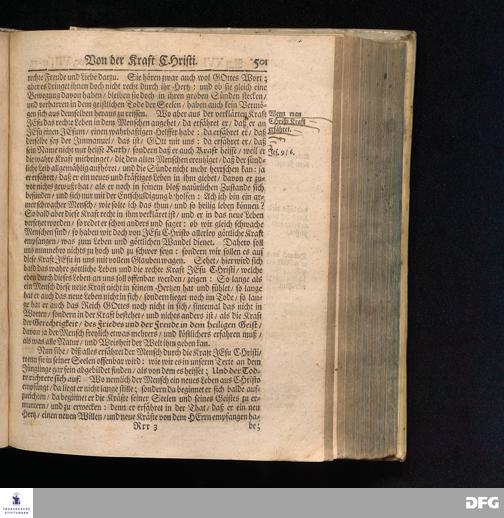 Von der Kraft CHristi. 501
rechte Freude und Liebe darzu. Sie hören zwar auch wol GOttes Wort;
aber es dringet ihnen doch nicht recht durch ihr Hertz: und ob sie gleich eine
Bewegung davon haben / bleiben sie doch in ihren groben Sünden stecken /
und verharren in dem geistlichen Tode der Seelen / haben auch kein Vermö-
gen sich aus demselben heraus zu reissen. Wo aber aus der verklärten Kraft
JEsu das rechte Leben in dem Menschen angehet / da erfähret er / daß er an
JEsu einen JEsum / einen wahrhaftigen Helffer habe: da erfähret er / daß
derselbe sey der Immanuel / das ist / GOtt mit uns: da erfähret er / daß
sein Name nicht nur heisse Rath / sondern daß er auch Kraft heisse / weil er
die wahre Kraft mitbringet / die den alten Menschen creutziget / daß der sünd-
liche Leib allgemählig aufhöret / und die Sünde nicht mehr herrschen kan: ja
er erfähret / daß er ein neues und kräftiges Leben in ihm giebet / davon er zu-
vor nichts gewust hat / als er noch in seinem bloß natürlichen Zustande sich
befunden / und sich nur mit der Entschuldigung beholfen: Ach ich bin ein ar-
mer schwacher Mensch / wie solte ich das thun / und so heilig leben können?
So bald aber diese Kraft recht in ihm verkläret ist / und er in das neue Leben
versetzet worden / so redet er schon anders und saget: ob wir gleich schwache
Menschen sind / so haben wir doch von JEsu Christo allerley göttliche Kraft
empfangen / was zum Leben und göttlichen Wandel dienet. Dahero soll
uns nunmehro nichts zu hoch und zu schwer seyn: sondern wir sollen es auf
diese Kraft JEsu in uns mit vollem Glauben wagen. Sehet / hier wird sich
bald das wahre göttliche Leben und die rechte Kraft JEsu Christi / welche
eben durch dieses Leben an uns soll offenbar werden / zeigen: So lange als
ein Mensch diese neue Kraft nicht in seinem Hertzen hat und fühlet / so lange
hat er auch das neue Leben nicht in sich / sondern lieget noch im Tode / so lan-
ge hat er auch das Reich GOttes noch nicht in sich / sintemal das nicht in
Worten / sondern in der Kraft bestehet / und nichts anders ist / als die Kraft
der Gerechtigkeit / des Friedes und der Freude in dem heiligen Geist /
davon ja der Mensch freylich etwas mehrers / und köstlichers erfahren muß /
als was alle Natur / und Weisheit der Welt ihm geben kan.
Nun sihe / diß alles erfähret der Mensch durch die Kraft JEsu CHristi /
wenn sie in seiner Seelen offenbar wird: wie wir es in unserm Texte an dem
Jünglinge gar fein abgebildet finden / als von dem es heisset; Und der Tod-
te richtete sich auf. Wo nemlich der Mensch ein neues Leben aus Christo
empfing / da liegt er nicht lange stille; sondern da beginnet er sich balde auf-
zurichten / da beginnet er die Kräfte seiner Seelen und seines Geistes zu er-
muntern / und zu erwecken: denn er erfähret in der That / daß er ein neu
Hertz / einen neuen Willen / und neue Kräfte von dem HErrn empfangen ha-
Rrr 3 be;
Wenn man
Christi Kraft
erfähret.
Jes. 9 / 6.
DFG